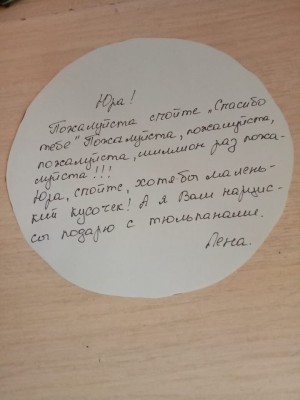 Юра!
Пожалуйста спойте „Спасибо
тебе" Пожалуйста, пожалуйста,
пожалуйста, миллион раз пожа-
луйста!!!
Юра, спойте, хотя бы малень-
кий кусочек! А я Вам нарцис-
сы подарю с тюльпанами.
Лена.